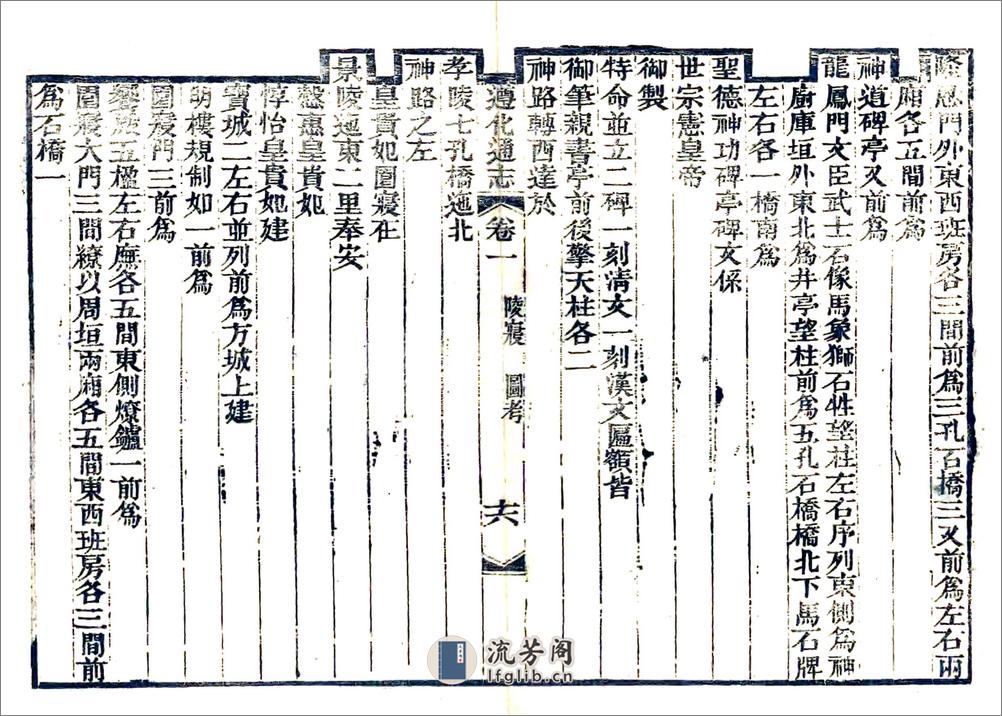 隆恩門外東西班房各三間前爲三孔石橋三又前爲左右兩
廂各五間前爲
神道碑亭又前爲
龍鳳門文臣武士石像馬象獅石牲望柱左右序列東側爲神
廚庫垣外東北爲井亭望柱前爲五孔石橋橋北下馬石牌
左右各一橋南爲
聖德神功碑亭碑文係
世宗憲皇帝
御製
特命並立二碑一刻清文一刻漢文匾額皆
御筆親書亭前後擎天柱各二
神路轉西達於
遵化通志 卷一 陵寢 圖考 十六
孝陵七孔橋迤北
神路之左
皇貴妃園寢在
景陵迤東二里奉安
慤惠皇貴妃
惇怡皇貴妃建
寶城二左右並列前爲方城上建
明樓規制如一前爲
園寢門三前爲
饗殿五楹左右廡各五間東側燎鑪一前爲
園寢大門三間繚以周垣兩廂各五間東西班房各三間前
爲石橋一
流芳阁
lfglib.cn